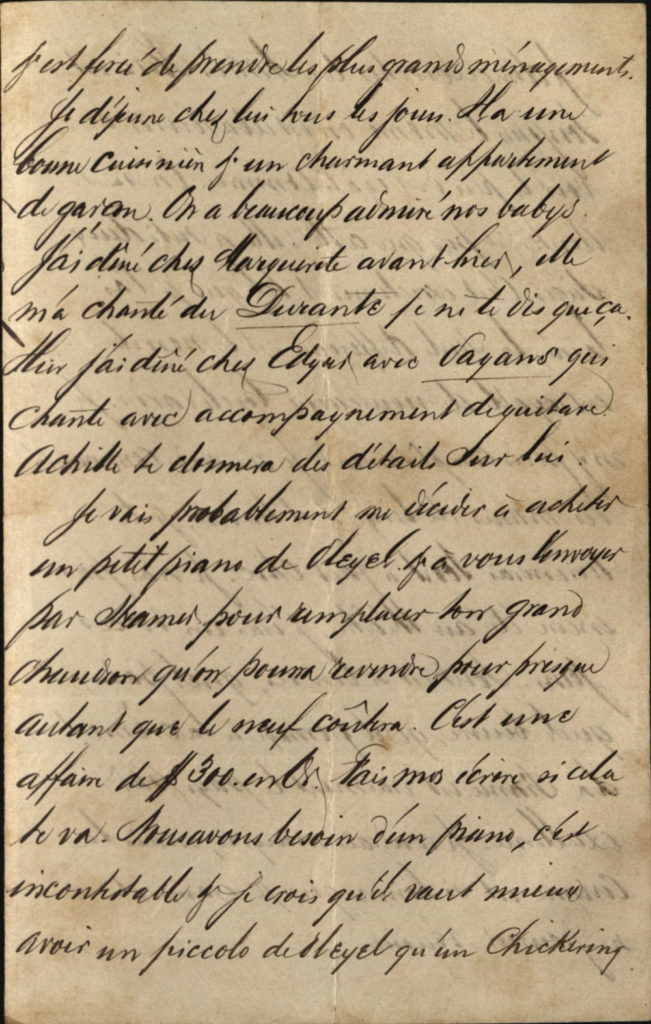 & est forcé de prendre les plus grands ménagements.
Je déjeune chez lui tous les jours. Il a une
bonne cuisinière & un charmant appartement
de garçon. On a beaucoup admiré nos babys.
J'ai diné chez Marguerite avant-hier, elle
m'a chanté du Durante je ne te dis que ça.
Hier j'ai diné chez Edgar avec Pagans qui
chante avec accompagnement de guitare.
Achille te donnera des détails sur lui.
Je vais probablement me décider à acheter
un petit piano de Pleyel & à vous l'envoyer
par steamer pour remplacer ton grand
chaudron qu'on pourra revendre pour presque
autant que le neuf coûtera. C'est une
affaire de $300. en Or. Fais moi écrire si cela
te va. Nous avons besoin d'un piano, c'est
incontestable & je crois qu'il vaut mieux
avoir un piccolo de Pleyel qu'un Chickering